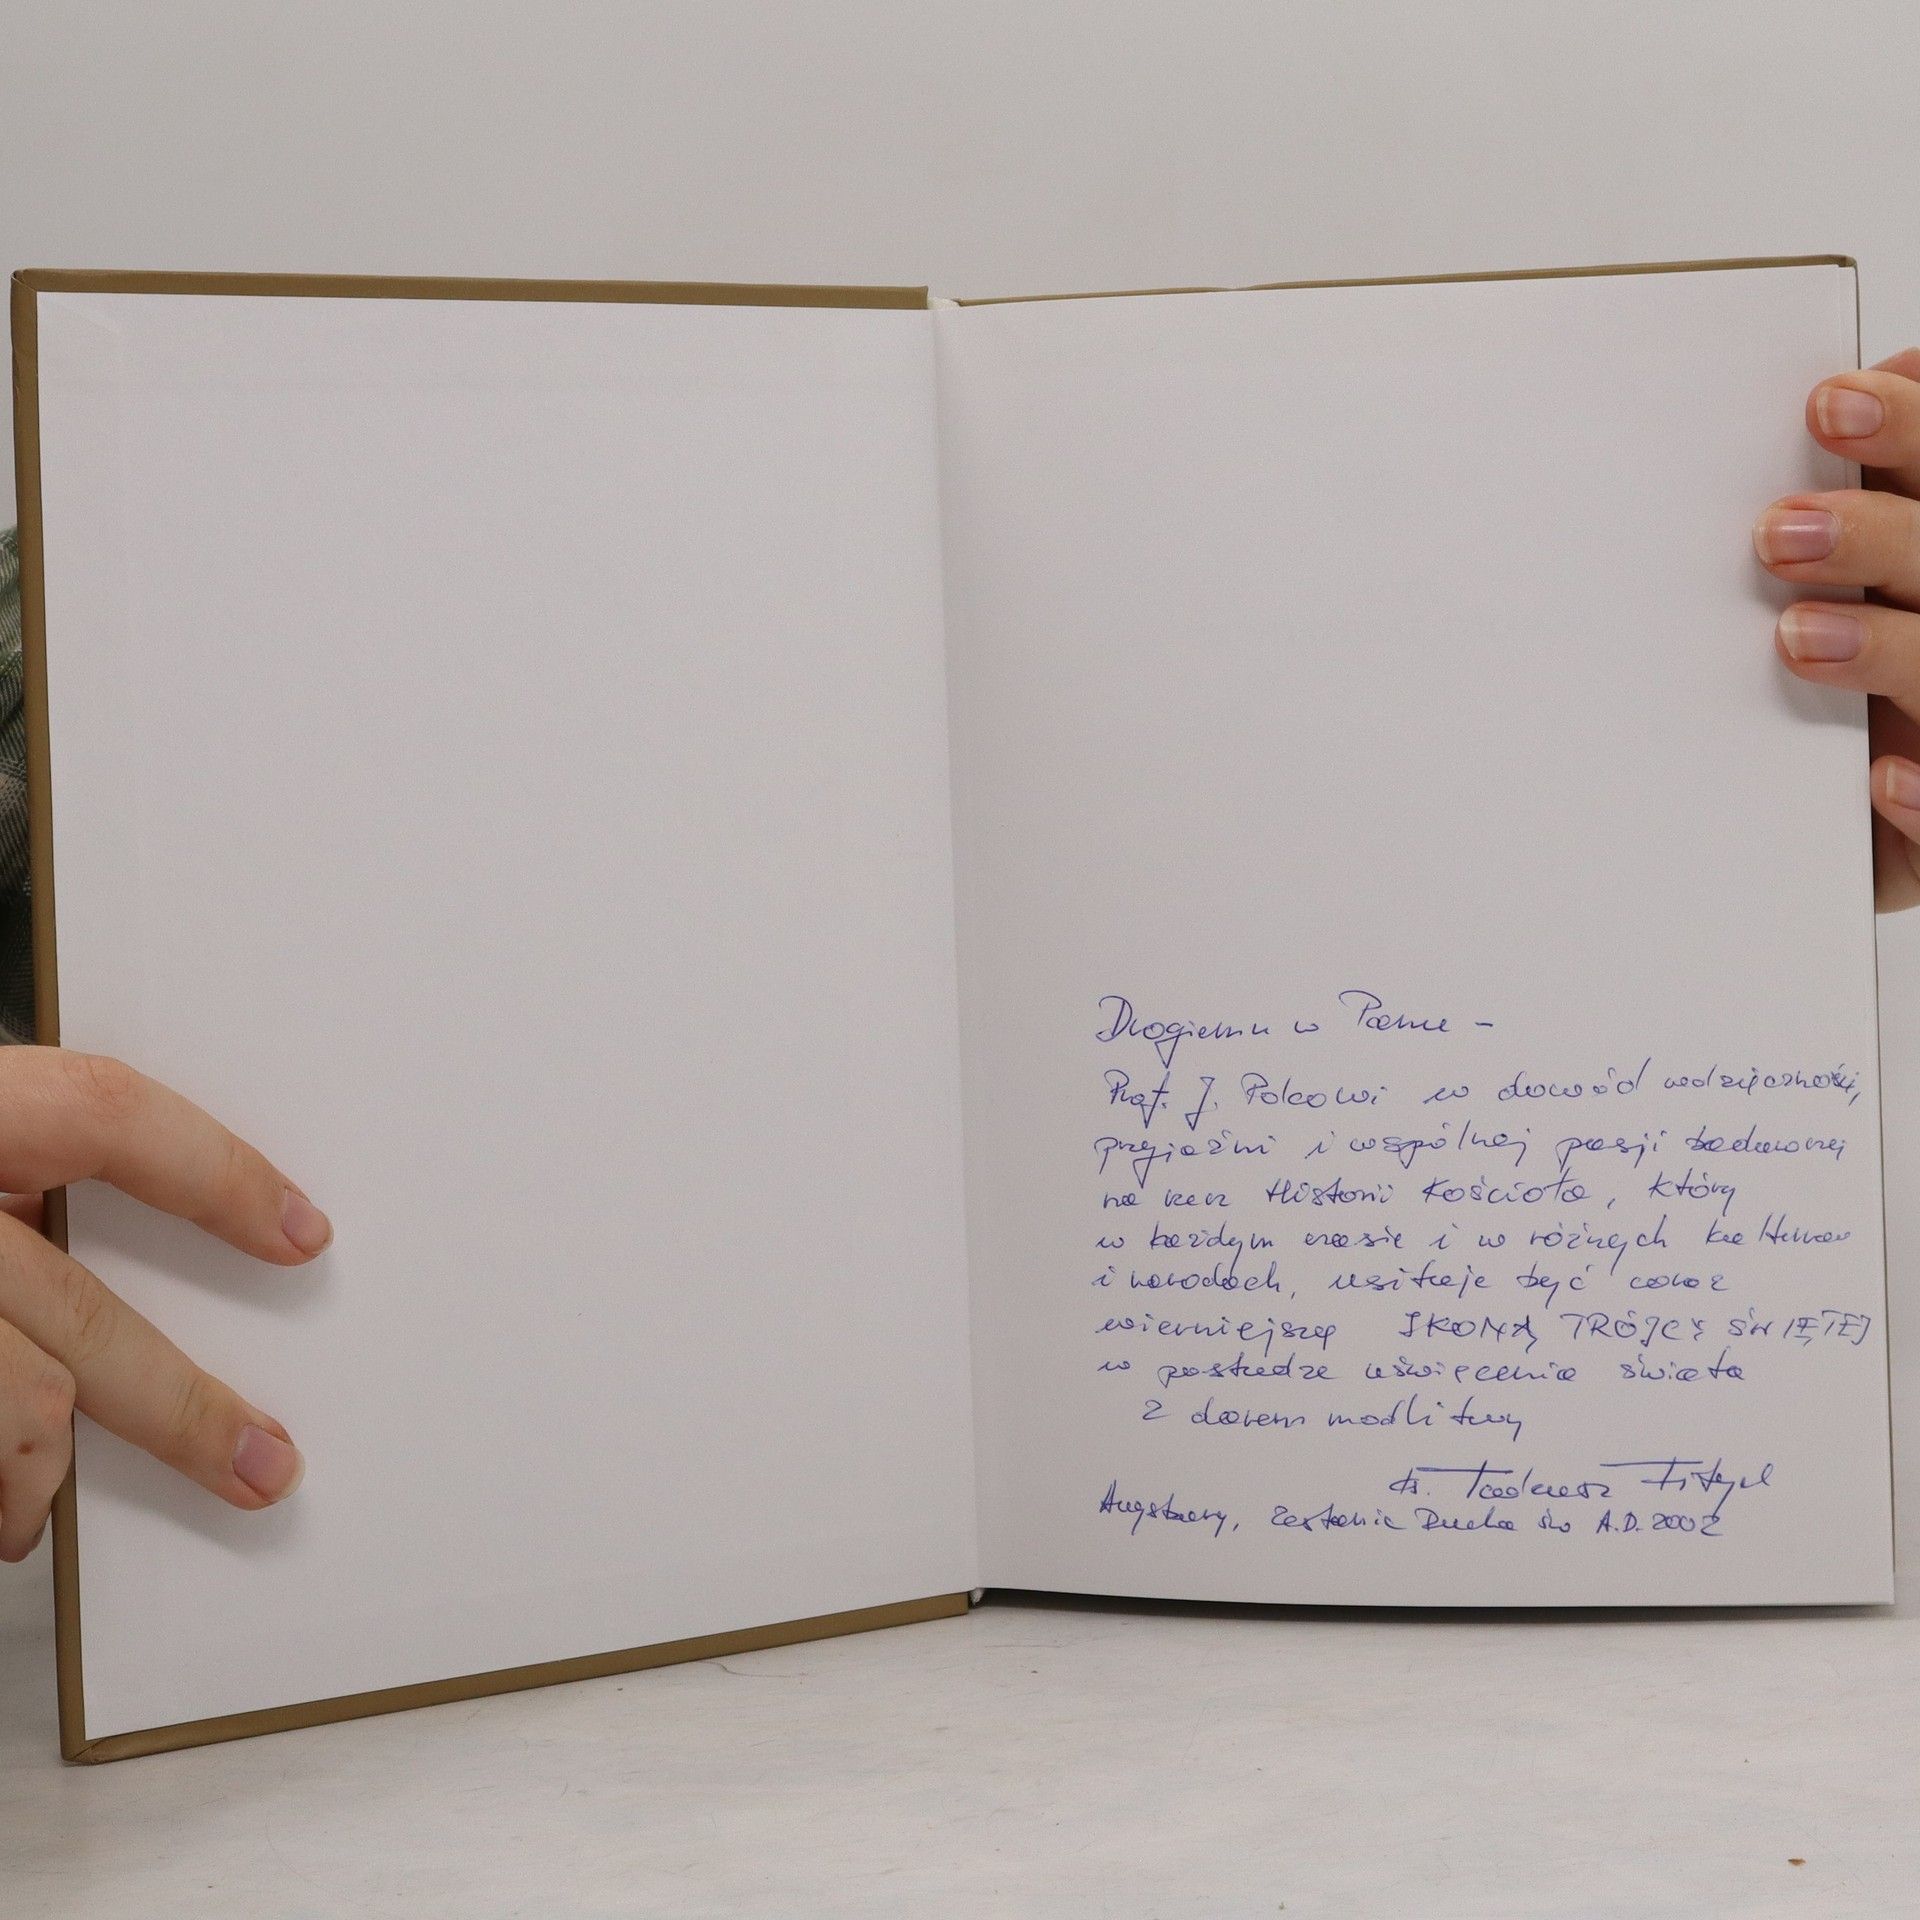 Drogiemu w Panu –
Prof. J. Polcowi w dowód wdzięczności,
przyjaźni i wspólnej pasji badawczej
na rzecz Historii Kościoła, który
w każdym czasie i w różnych kulturach
i narodach, usiłuje być coraz
wierniejszą IKONĄ TRÓJCY ŚWIĘTEJ
w posłudze uświęcenia świata
Z darem modlitwy
ks. Tadeusz Fitych
Augsburg, Zesłanie Ducha św A.D. 2002